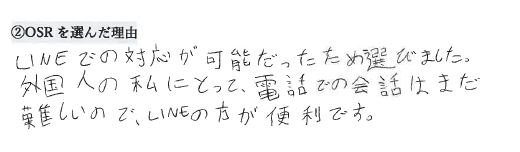 ②OSR を選んだ理由
LINEでの対応が可能だったため選びました。
外国人の私にとって、電話での会話はまだ
難しいので、LINEの方が便利です。